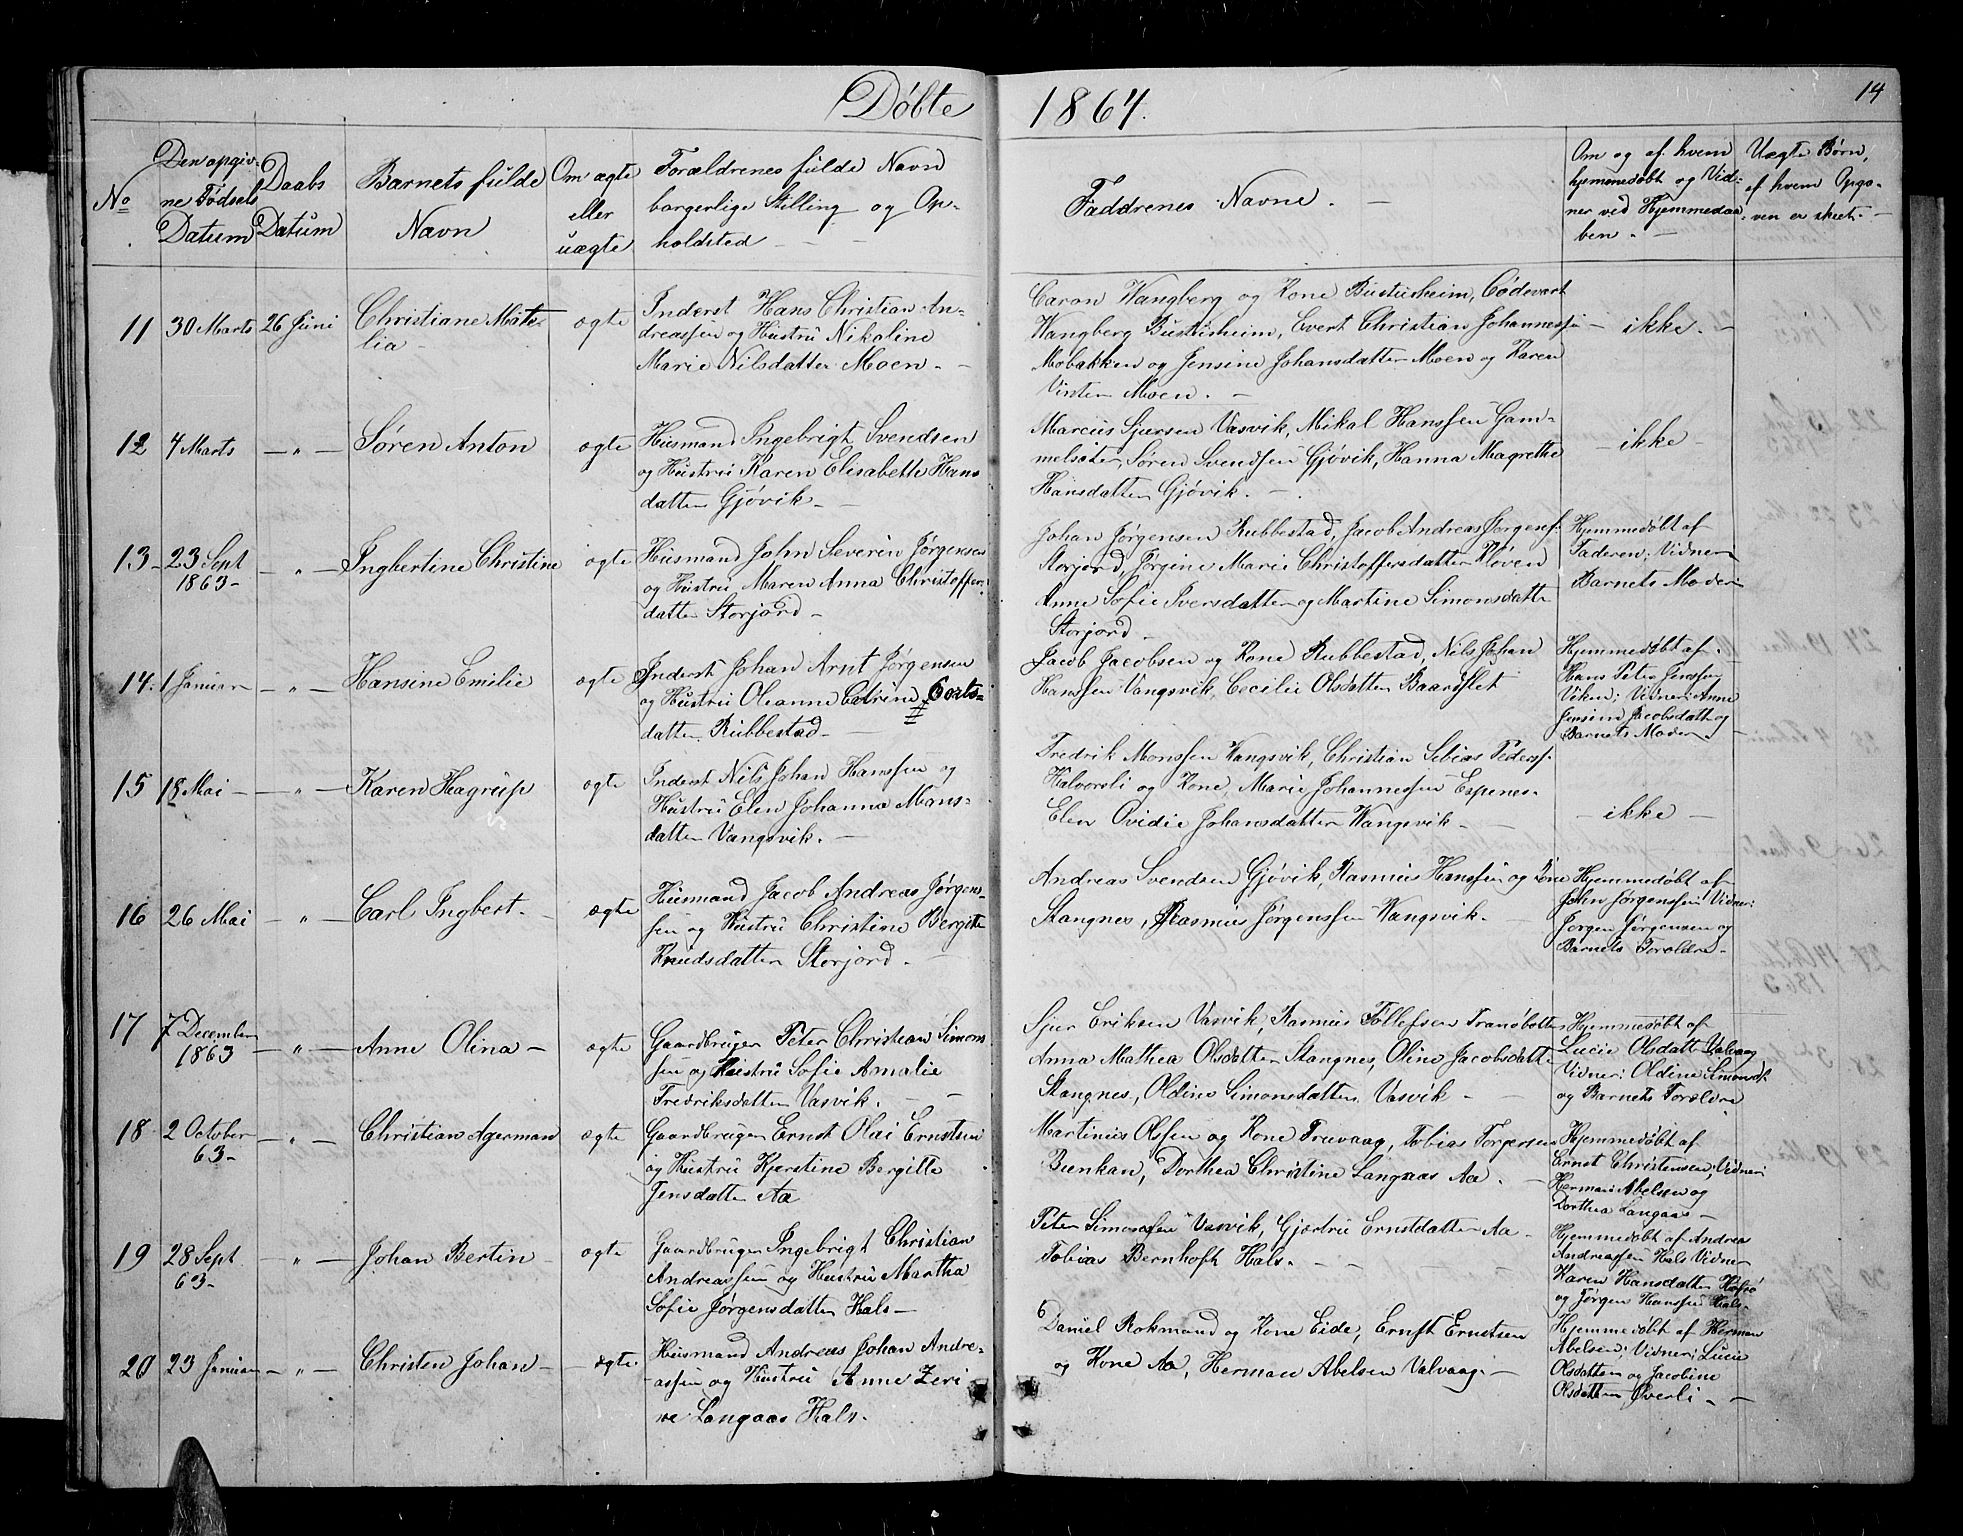 Døbte 1864.
14
No
Den opgiv-
ne Fødsels
Datum
Daabs
Datum
Barnets fulde
Navn
Om ægte
eller
uægte
Forældrenes fulde Navn
borgerlige Stilling og Op-
holdsted
Faddrenes Navne.
Om og af hvem
hjemmedøbt og Vid-
ner ved Hjemmedaa-
ben.
Uægte Børn,
af hvem Opga-
ven er skeet.
11 30 Marts 26 Juni
Christiane Mate-
lia
ægte
Inderst Hans Christian An-
dreassen og Hustru Nikoline
Marie Nilsdatter Moen.
Caron Wangberg og Kone Bustusheim, Gødevart
Wangberg Bustusheim, Evert Christian Johannessen
Mobakken og Jensine Johansdatter Moen og Karen
Vinter Moen.
ikke.
12 4 Marts — " —
Søren Anton
ægte
Husmand Ingebrigt Svendsen
og Hustru Karen Elisabeth Hans
datter Gjøvik
Marcus Sjursen Vasvik, Mikal Hanssen Gam-
melsæter, Søren Svendsen Gjøvik, Hanna Magrethe
Hansdatter Gjøvik.
ikke
13 23 Sept
1863 — " —
Ingbertine Christine
ægte
Husmand John Severin Jørgensen
og Hustru Maren Anna Christoffer
datter Storjord
Johan Jørgensen Rubbestad, Jacob Andreas Jørgens:
Storjord, Jørgine Marie Christoffersdatter Kløven
Anne Sofie Iversdatter og Martine Simonsdatte
Storjord
Hjemmedøbt af
Faderen; Vidner
Barnets Moder
14. 1 Januar — " —
Hansine Emilie
ægte
Inderst Johan Arnt Jørgensen
og Hustru Oleanna Catrine Coats-
datter Rubbestad
Jacob Jacobsen og Kone Rubbestad, Nils Johan
Hanssen Vangsvik, Cecilie Olsdatter Baarslet
Hjemmedøbt af
Hans Peter Jenssen
Viken; Vidner: Anne
Jensine Jacobsdatt og
Barnets Moder.
15 18 Mai — " —
Karen Hagrup
ægte
Inderst Nils Johan Hanssen og
Hustru Elen Johanna Mons-
datter Vangsvik.
Fredrik Monssen Vangsvik, Christian Tobias Pederss-
Halvorsli og Kone, Marie Johannessen Espenes-
Elen Ovidie Johansdatter Wangsvik
ikke
16 26 Mai — " —
Carl Ingbert.
ægte
Husmand Jacob Andreas Jørgens-
sen og Hustru Christine Bergite
Knudsdatter Storjord.
Andreas Svendsen Gjøvik, Rasmus Hanssen og Kone
Stangnes, Rasmus Jørgenssen Wangsvik.
Hjemmedøbt af
John Jørgenssen Vidner:
Jørgen Jørgensen og
Barnets Forældre
17 7 December
1863 — " —
Anne Olina
ægte
Gaardbruger Peter Christian Simons
sen og Hustru Sofie Amalie
Fredriksdatter Vasvik.
Sjur Eriksen Vasvik, Rasmus Tollefsen Tranøbotten
Anna Mathea Olsdatter Stangnes, Oline Jacobsdatte
Stangnes, Oldine Simonsdatter Vasvik
Hjemmedøbt af
Lucie Olsdatt Valvaag
Vidner: Oldine Simonsdt
og Barnets Forældre
18 2 October
63 — " —
Christian Agerman
ægte
Gaardbruger Ernst Olai Ernstsen
og Hustru Kjerstine Bergitte
Jensdatter Aa
Martinus Olssen og Kone Truvaag, Tobias Torgersen
Bunkan, Dorthea Christine Langaas Aa.
Hjemmedøbt af
Ernst Christensen, Vidner:
Herman Abelsen og
Dorthea Langaas
19 28 Sept.
63 — " —
Johan Bertin
ægte
Gaardbruger Ingebrigt Christian
Andreassen og Hustru Martha
Sofie Jørgensdatter Hals
Peter Simonssen Vasvik, Gjertru Ernstdatter Aa
Tobias Bernhoft Hals.
Hjemmedøbt af Andrea
Andreassen Hals Vidner
Karen Hansdatter
og Jørgen Hanssen Hals
20 23 Januar — " —
Christen Johan
ægte
Husmand Andreas Johan Andre-
assen og Hustru Anne Zeri
ne Langaas Hals.
Daniel Rokmand og Kone Eide, Ernst Ernstsen
og Kone Aa, Herman Abelsen Valvaag
Hjemmedøbt af Herman
Abelsen; Vidner: Lucie
Olsdatter og Jacobine
Olsdatter Øverli